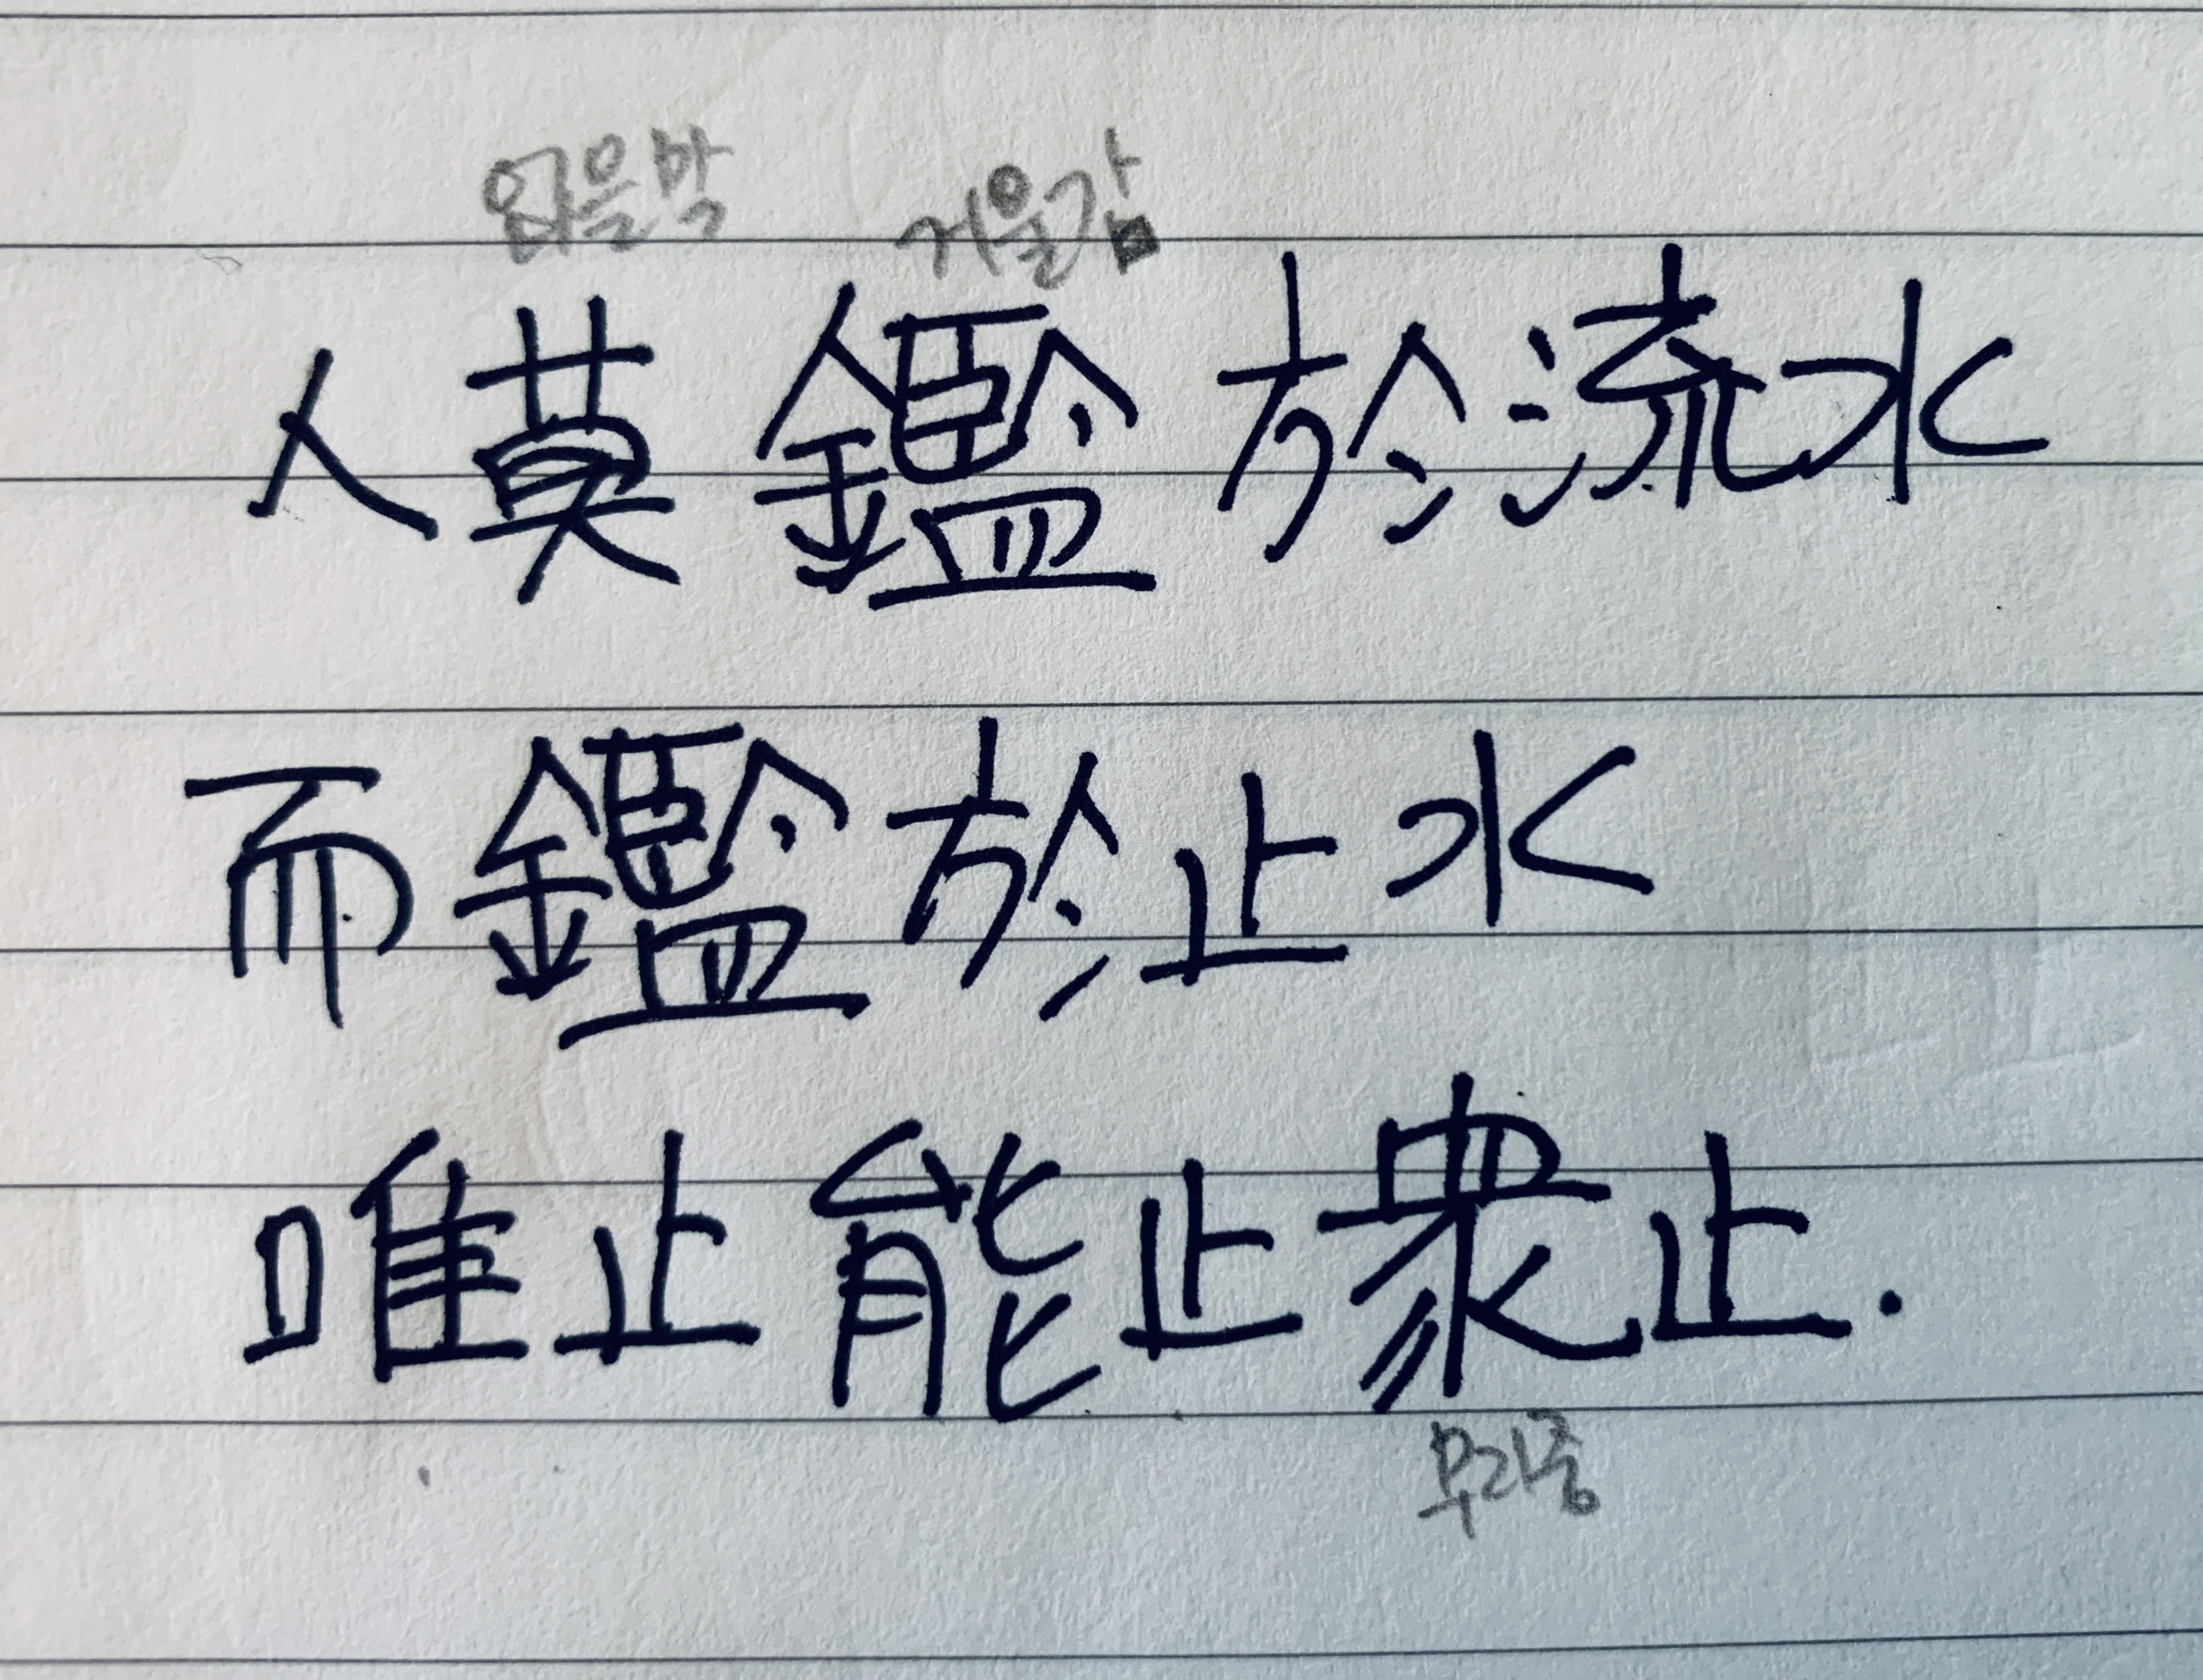 없을막 거울감
人莫鑑於流水
而鑑於止水
唯止能止衆止.
무리중